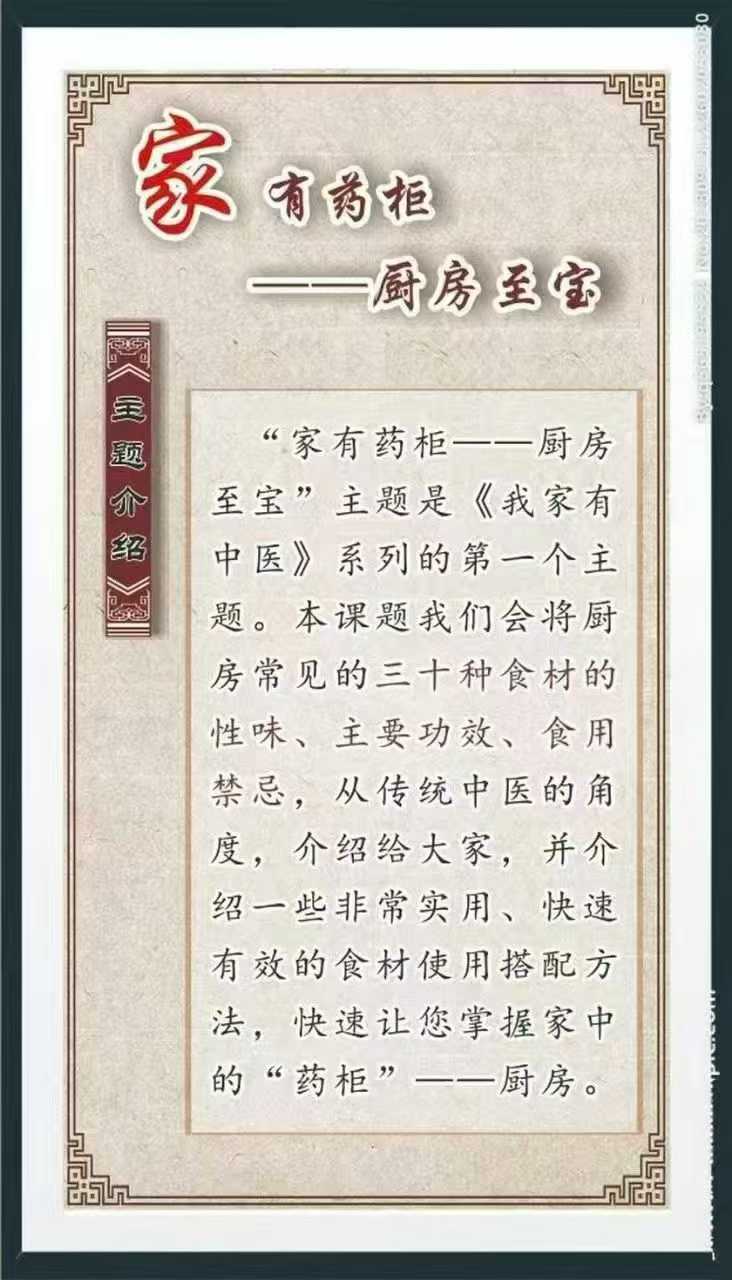 家有药柜
——厨房至宝
主题介绍
“家有药柜——厨房
至宝”主题是《我家有
中医》系列的第一个主
题。本课题我们会将厨
房常见的三十种食材的
性味、主要功效、食用
禁忌，从传统中医的角
度，介绍给大家，并介
绍一些非常实用、快速
有效的食材使用搭配方
法，快速让您掌握家中
的“药柜”——厨房。